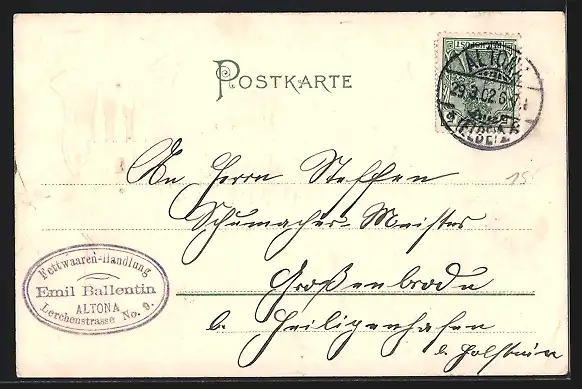 POSTKARTE
ALTONA
29.3.02.6-7N
(ELBE)
An Herrn Steffen
Schumacher-Meister
Großenbrode
b. Heiligenhafen
b. Holstein
15
Fettwaaren-Handlung
Emil Ballentin
ALTONA
Lerchenstrasse No. 9.